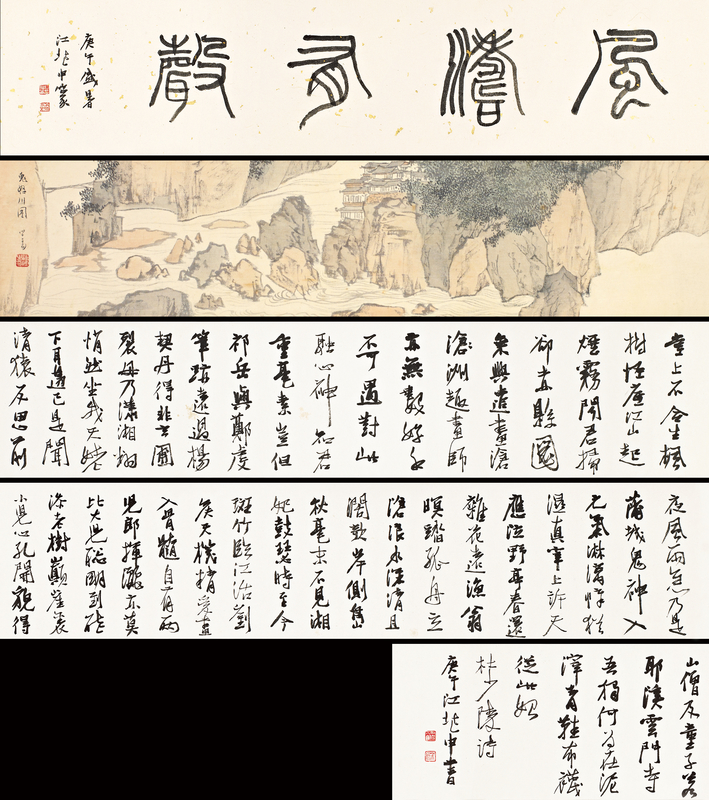 風濤有聲
庚午盛暑
江兆申篆
川圖 心畬
堂上不合生楓
樹怪底江山起
煙霧聞君掃
卻赤縣圖
乘興遣畫滄
滄洲趣畫師
亦無數好手
不可遇對此
融心神知君
重毫素豈但
祁岳與鄭虔
筆跡遠過楊
契丹得非玄圃
裂毋乃瀟湘翻
悄然坐我天姥
下耳邊已是聞
清猿反思前
夜風雨急乃是
蒲城鬼神入
元氣淋漓障猶
濕真宰上訴天
應泣野亭春還
雜花遠漁翁
暝踏孤舟立
滄浪水深清且
闊欹岸側島
秋毫末不見湘
妃鼓瑟時至今
斑竹臨江活劉
侯天機精愛畫
入骨髓自有兩
兒郎揮灑亦莫
比大兒聰明到能
添老樹巔崖裏
小兒心孔開貌得
山僧及童子若
耶溪雲門寺
吾獨何為在泥
滓青鞋布襪
從此始
杜少陵詩
庚午江兆申書